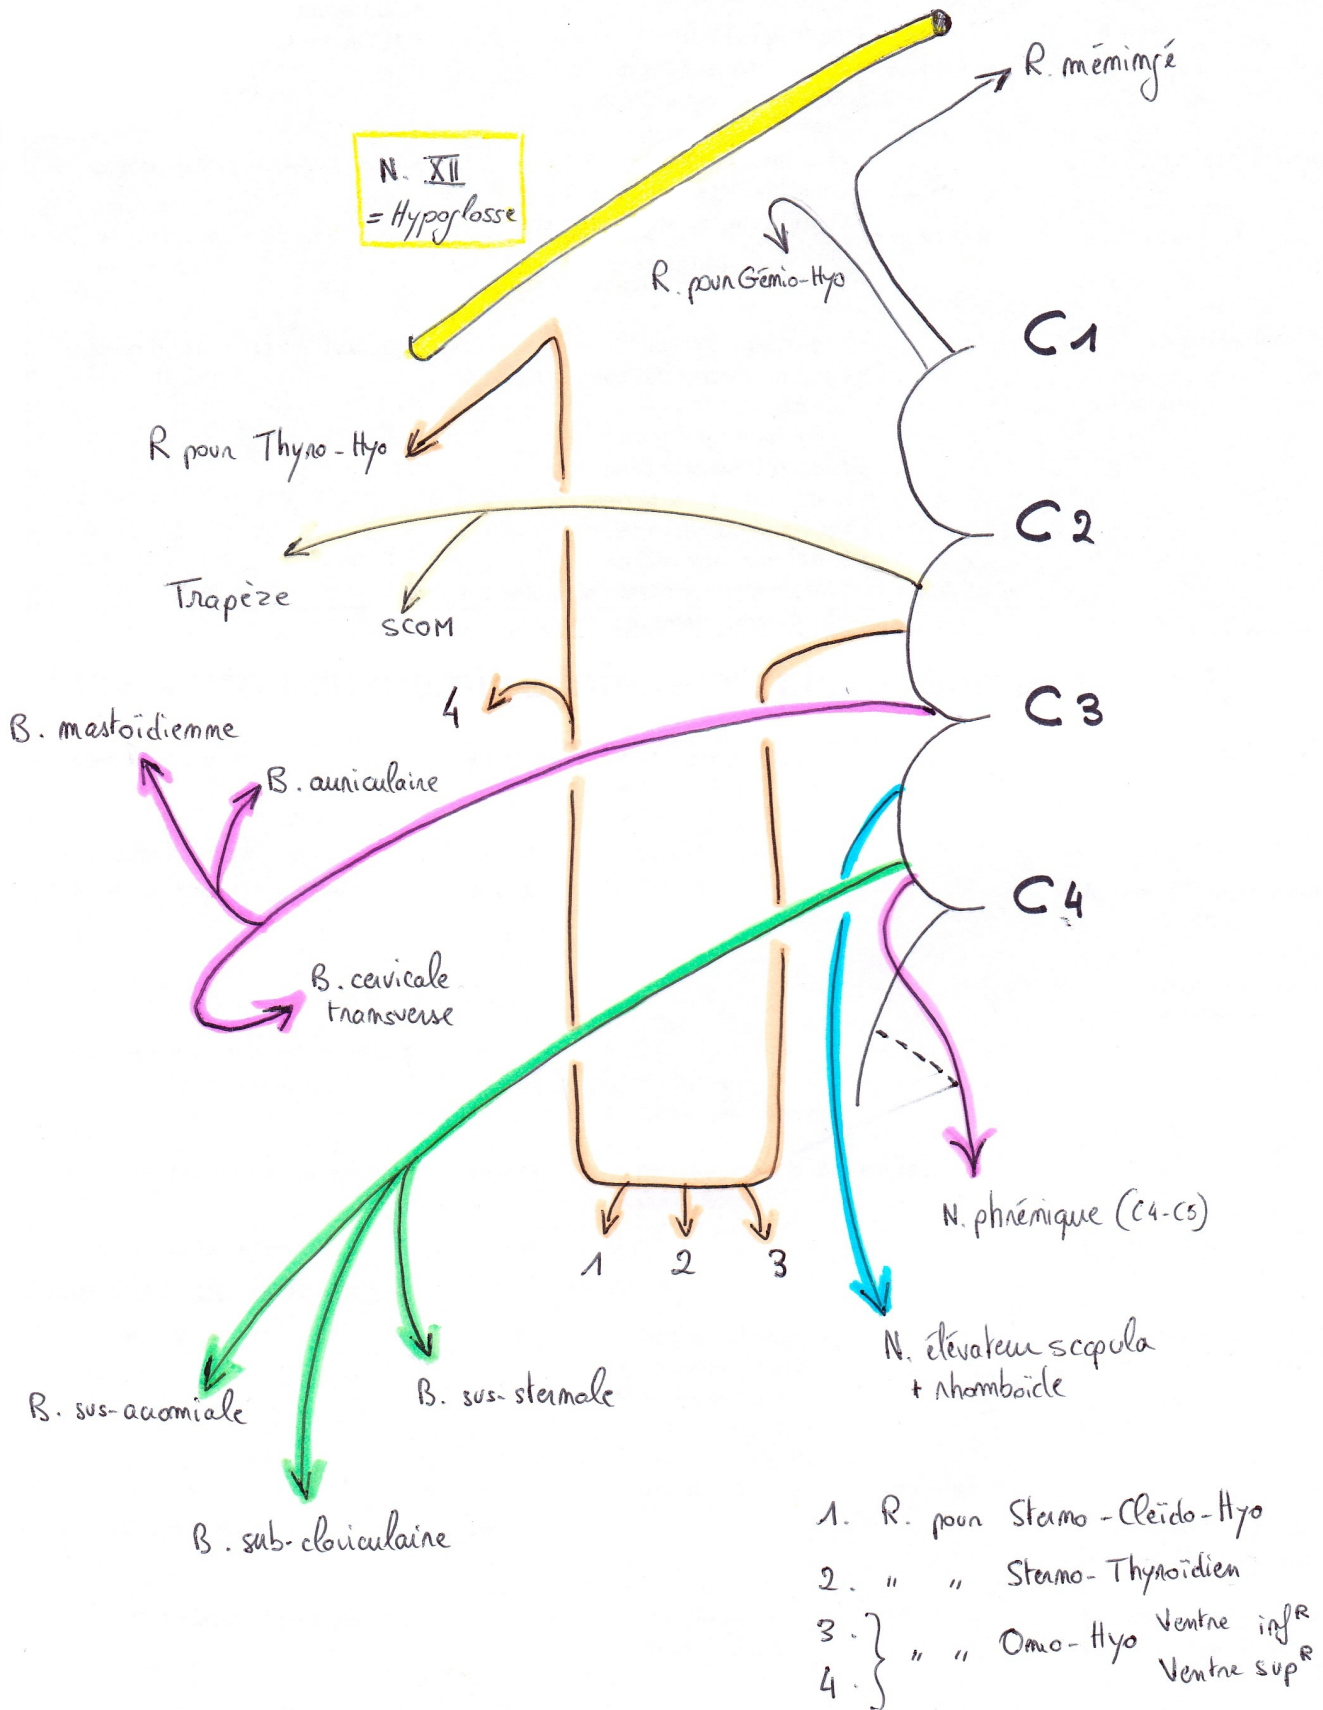 R. méningé
N. XII
= Hypoglosse
R. pour Génio-Hyo
C1
R pour Thyro-Hyo
C2
Trapèze
SCOM
4
C3
B. mastoïdienne
B. auriculaire
C4
B. cervicale
transverse
N. phrénique (C4-C5)
1 2 3
N. élévateur scapula
+ rhomboïde
B. sus-acromiale
B. sus-sternale
B. sub-claviculaire
1. R. pour Sterno-Cleïdo-Hyo
2. " " Sterno-Thyroïdien
3. } " " Omo-Hyo Ventre infR
4. Ventre supR